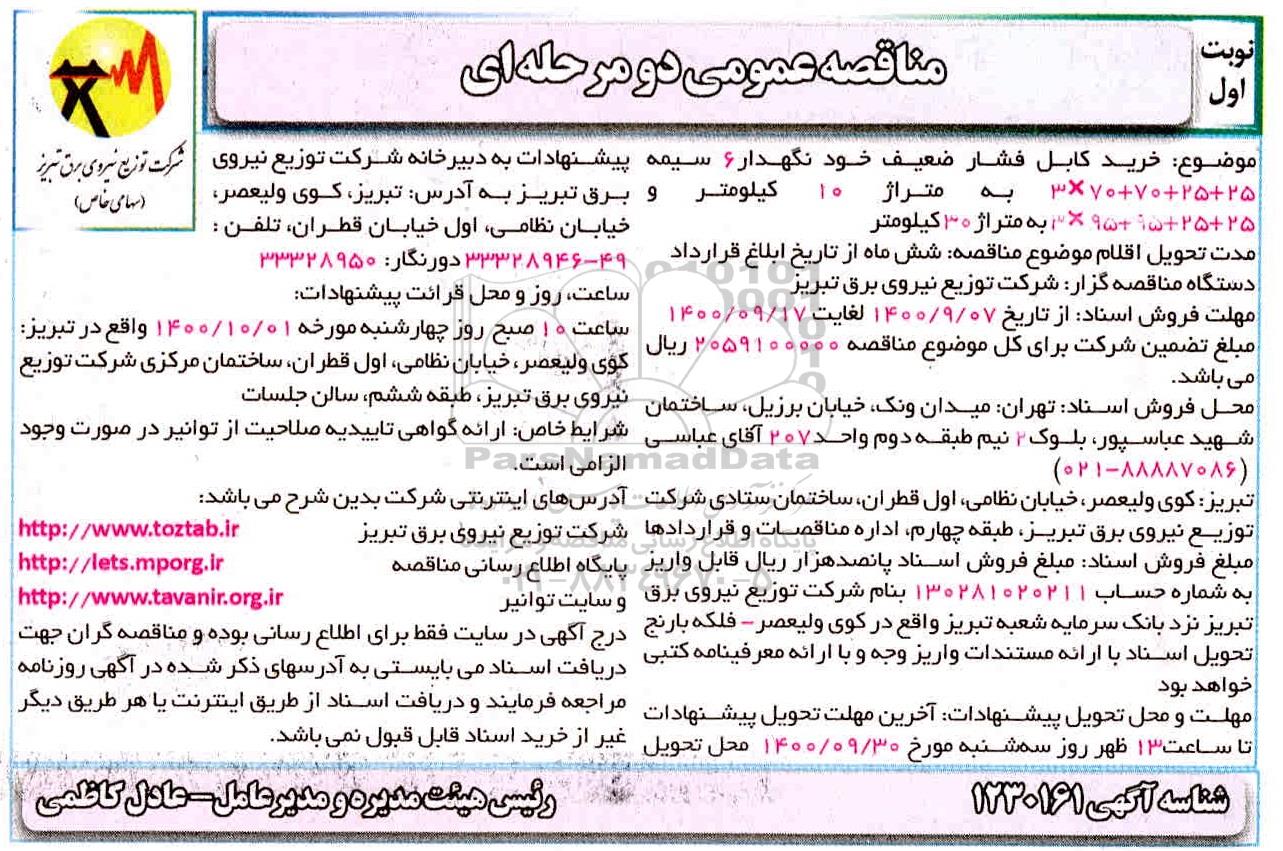 نوبت
اول
مناقصه عمومی دو مرحله ای
شرکت توزیع نیروی برق تبریز
(سهامی خاص)
موضوع: خرید کابل فشار ضعیف خود نگهدار ۶ سیمه
۳×۷۰+۷۰+۲۵+۲۵ به متراژ ۱۰ کیلومتر و
۳×۹۵+۹۵+۲۵+۲۵ به متراژ ۳۰ کیلومتر
مدت تحویل اقلام موضوع مناقصه: شش ماه از تاریخ ابلاغ قرارداد
دستگاه مناقصه گزار: شرکت توزیع نیروی برق تبریز
مهلت فروش اسناد: از تاریخ ۱۴۰۰/۹/۰۷ لغایت ۱۴۰۰/۰۹/۱۷
مبلغ تضمین شرکت برای کل موضوع مناقصه ۲۰۵۹۱۰۰۰۰۰ ریال
می باشد.
محل فروش اسناد: تهران: میدان ونک، خیابان برزیل، ساختمان
شهید عباسپور، بلوک ۲ نیم طبقه دوم واحد ۲۰۷ آقای عباسی
(۰۲۱-۸۸۸۸۷۰۸۶)
تبریز: کوی ولیعصر، خیابان نظامی، اول قطران، ساختمان ستادی شرکت
توزیع نیروی برق تبریز، طبقه چهارم، اداره مناقصات و قراردادها
مبلغ فروش اسناد: مبلغ فروش اسناد پانصدهزار ریال قابل واریز
به شماره حساب ۱۳۰۲۸۱۰۲۰۲۱۱ بنام شرکت توزیع نیروی برق
تبریز نزد بانک سرمایه شعبه تبریز واقع در کوی ولیعصر- فلکه بارنج
تحویل اسناد با ارائه مستندات واریز وجه و با ارائه معرفینامه کتبی
خواهد بود
مهلت و محل تحویل پیشنهادات: آخرین مهلت تحویل پیشنهادات
تا ساعت ۱۳ ظهر روز سه‌شنبه مورخ ۱۴۰۰/۰۹/۳۰ محل تحویل
پیشنهادات به دبیرخانه شرکت توزیع نیروی
برق تبریز به آدرس: تبریز، کوی ولیعصر،
خیابان نظامی، اول خیابان قطران، تلفن :
۳۳۳۲۸۹۴۶-۴۹ دورنگار: ۳۳۳۲۸۹۵۰
ساعت، روز و محل قرائت پیشنهادات:
ساعت ۱۰ صبح روز چهارشنبه مورخه ۱۴۰۰/۱۰/۰۱ واقع در تبریز:
کوی ولیعصر، خیابان نظامی، اول قطران، ساختمان مرکزی شرکت توزیع
نیروی برق تبریز، طبقه ششم، سالن جلسات
شرایط خاص: ارائه گواهی تاییدیه صلاحیت از توانیر در صورت وجود
الزامی است.
آدرس‌های اینترنتی شرکت بدین شرح می باشد:
شرکت توزیع نیروی برق تبریز http://www.toztab.ir
پایگاه اطلاع رسانی مناقصه http://iets.mporg.ir
و سایت توانیر http://www.tavanir.org.ir
درج آگهی در سایت فقط برای اطلاع رسانی بوده و مناقصه گران جهت
دریافت اسناد می بایستی به آدرسهای ذکر شده در آگهی روزنامه
مراجعه فرمایند و دریافت اسناد از طریق اینترنت یا هر طریق دیگر
غیر از خرید اسناد قابل قبول نمی باشد.
ParsNamadData
پایگاه اطلاع رسانی مناقصه و مزایده
۰۲۱-۸۸۳۴۹۶۷۰-۵
شناسه آگهی ۱۲۳۰۱۶۱
رئیس هیئت مدیره و مدیرعامل-عادل کاظمی